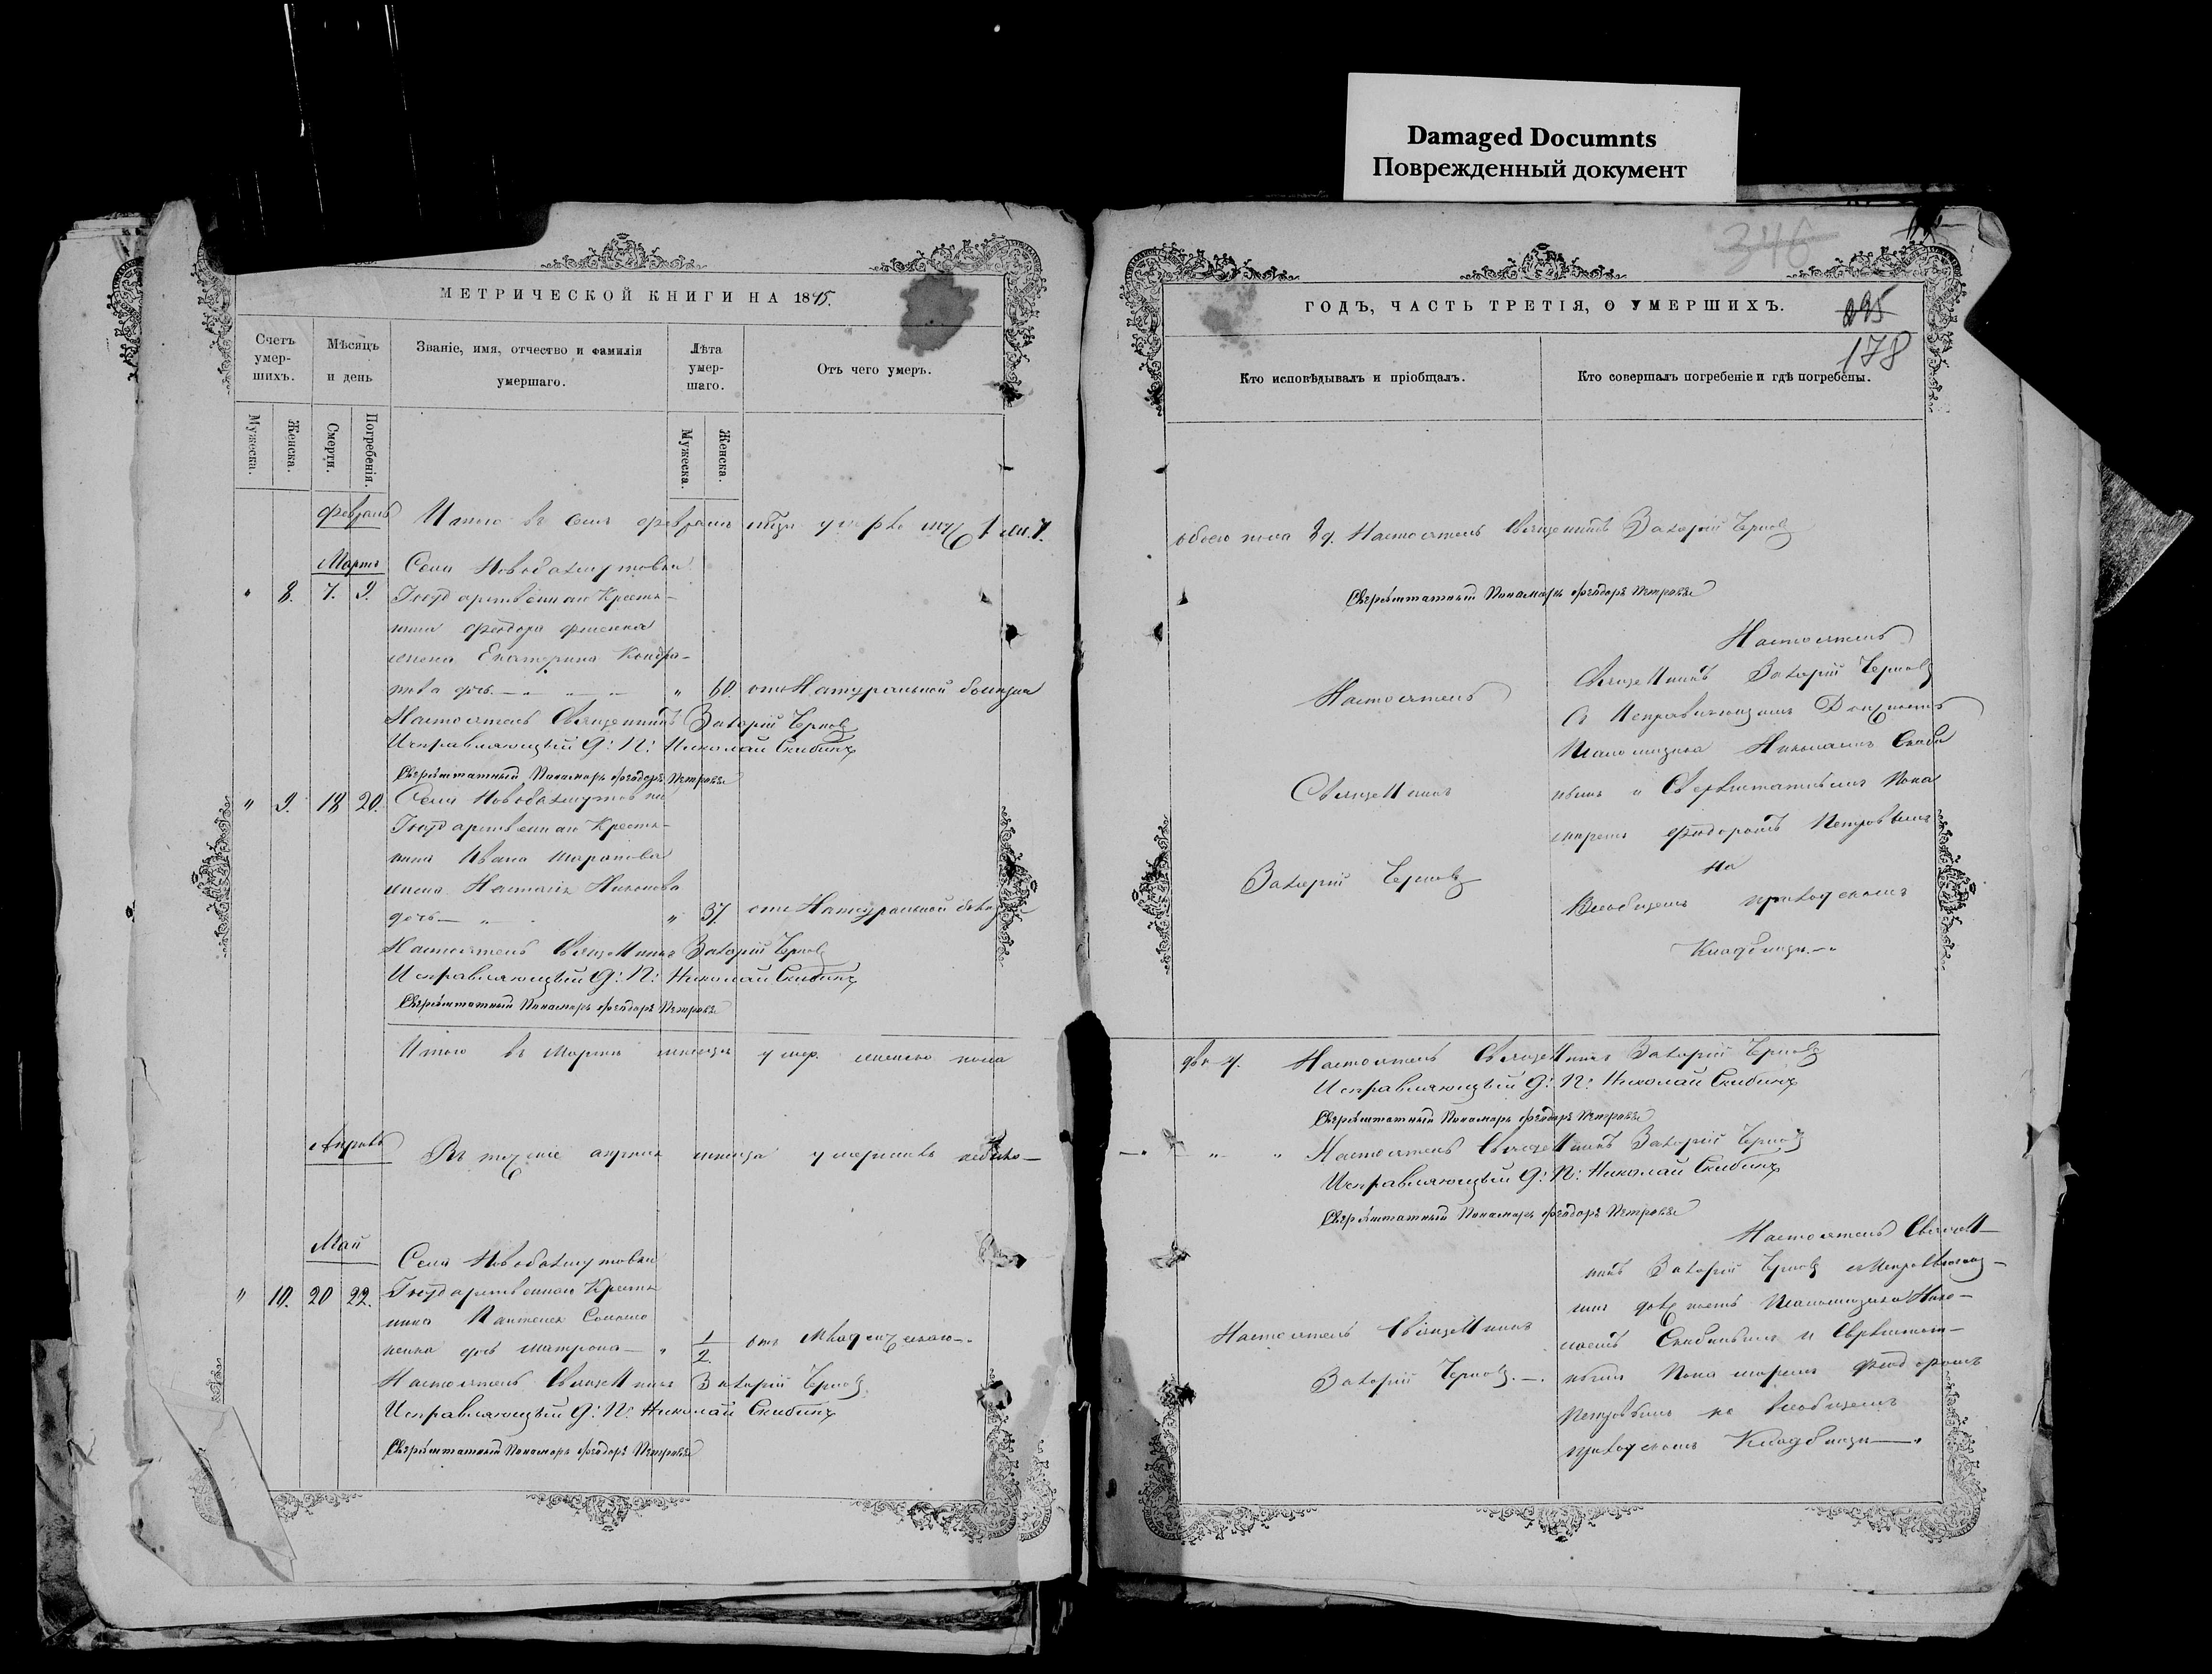 Damaged Documnts
Поврежденный документ
346
МЕТРИЧЕСКОЙ КНИГИ НА 1875.
Счетъ умер-шихъ.
Мѣсяцъ и день
Званіе, имя, отчество и фамилія умершаго.
Лѣта умер-шаго.
Отъ чего умеръ.
Мужеска.
Женска.
Смерти.
Погребенія.
Мужеска.
Женска.
Февраль
Итого въ семъ февралѣ мѣсяцѣ умерло муж 1 жен. 7.
Мартъ
Села Новобахмутовки
" 8. 7. 9. Государственнаго Крестья-
нина Феодора
жена Екатерина Кондра-
това дочь " 60 отъ Натуральной болѣзни
Настоятель Священникъ Захарій Чернов
Исправляющій Д: П: Николай Скибинъ
Сверхштатный Пономарь Феодоръ Петровъ
" 9. 18 20. Села Новобахмутовки
Государственнаго Крестья-
нина Ивана
жена Наталія
дочь " " 37. отъ Натуральной
Настоятель Священникъ Захарій Чернов
Исправляющій Д: П: Николай Скибинъ
Сверхштатный Пономарь Феодоръ Петровъ
Итого въ Мартѣ мѣсяцѣ умер. женска пола
Апрель
Въ теченіе апреля мѣсяца умершихъ небыло
Май
Села Новобахмутовки
" 10. 20 22. Государственнаго Крестья
нина Пантелея
дочь Матрона " 1/2. отъ Младенческаго
Настоятель Священникъ Захарій Чернов
Исправляющій Д: П: Николай Скибинъ
Сверхштатный Пономарь Феодоръ Петровъ
ГОДЪ, ЧАСТЬ ТРЕТІЯ, О УМЕРШИХЪ.
178
Кто исповѣдывалъ и пріобщалъ.
Кто совершалъ погребеніе и гдѣ погребены.
обоего пола 8 д. Настоятель Священникъ Захарій Чернов
Сверхштатный Пономарь Феодоръ Петровъ
Настоятель
Священникъ
Захарій Чернов
Настоятель
Священникъ Захарій Чернов
съ Исправляющимъ Должность
Псаломщика Николаемъ Скиби
нымъ и Сверхштатнымъ Поно
маремъ Феодоромъ Петровымъ
на
Всеобщемъ приходскомъ
Кладбищѣ.
двѣ д. Настоятель Священникъ Захарій Чернов
Исправляющій Д: П: Николай Скибинъ
Сверхштатный Пономарь Феодоръ Петровъ
Настоятель Священникъ Захарій Чернов
Исправляющій Д: П: Николай Скибинъ
Сверхштатный Пономарь Феодоръ Петровъ
Настоятель Священникъ
Захарій Чернов.
Настоятель Священ-
никъ Захарій Чернов
должность Псаломщика Нико-
лаемъ Скибинымъ и Сверхштат-
нымъ Пономаремъ Феодоромъ
Петровымъ на Всеобщемъ
приходскомъ Кладбищѣ